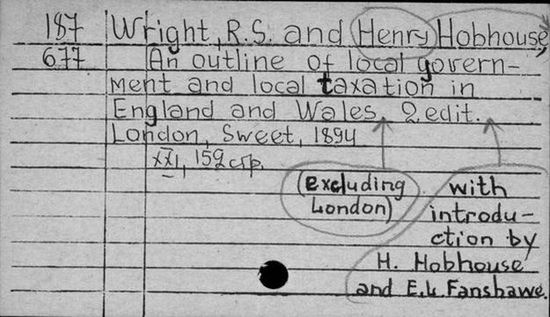 187 Wright, R.S. and Henry Hobhouse,
677 An outline of local govern-
ment and local taxation in
England and Wales. 2 edit.
London, Sweet, 1894
XXI, 152
(Excluding
London)
with
introdu-
ction by
H. Hobhouse
and E.L. Fanshawe.